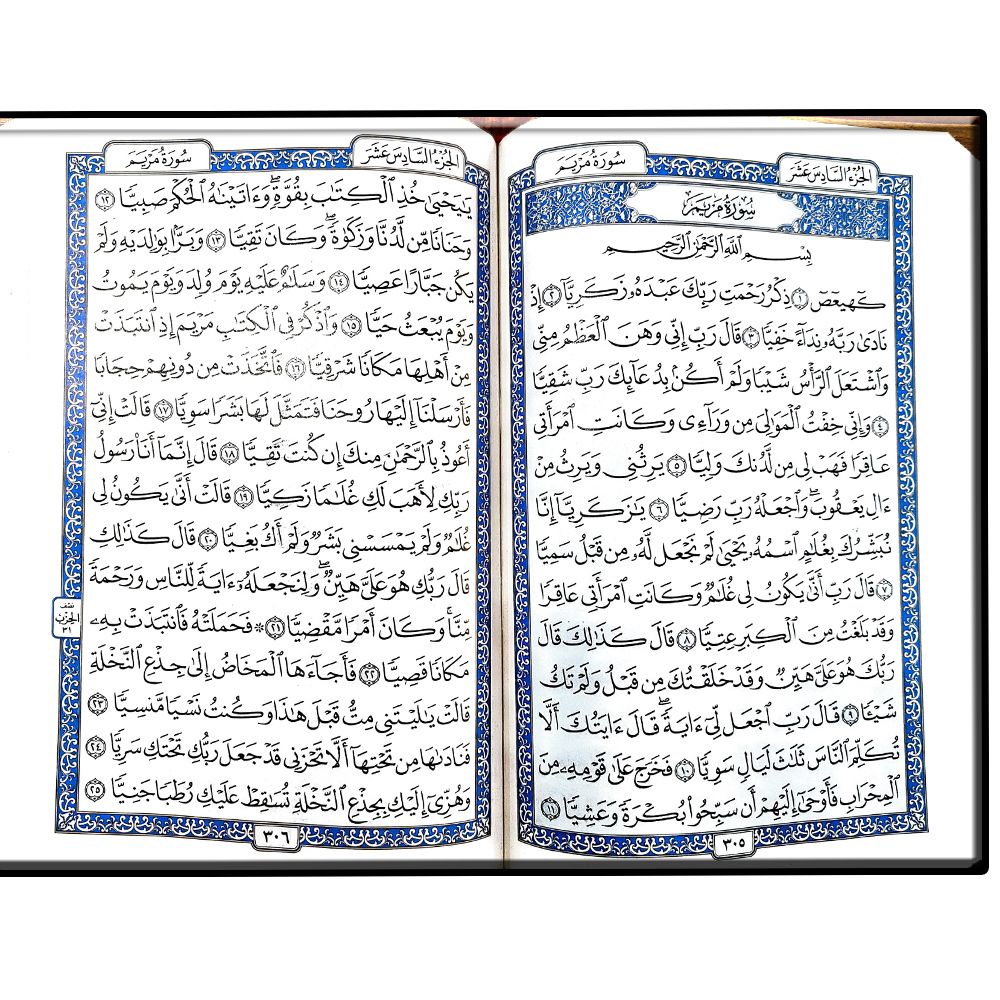 سُورَةُ مَرْيَمَ
الجُزْءُ السَّادِسَ عَشَرَ
سُورَةُ مَرْيَمَ
بِسْمِ ٱللَّهِ ٱلرَّحْمَٰنِ ٱلرَّحِيمِ
كٓهيعٓصٓ ١ ذِكْرُ رَحْمَتِ رَبِّكَ عَبْدَهُۥ زَكَرِيَّآ ٢ إِذْ
نَادَىٰ رَبَّهُۥ نِدَآءً خَفِيًّا ٣ قَالَ رَبِّ إِنِّى وَهَنَ ٱلْعَظْمُ مِنِّى
وَٱشْتَعَلَ ٱلرَّأْسُ شَيْبًا وَلَمْ أَكُنۢ بِدُعَآئِكَ رَبِّ شَقِيًّا
٤ وَإِنِّى خِفْتُ ٱلْمَوَٰلِىَ مِن وَرَآءِى وَكَانَتِ ٱمْرَأَتِى
عَاقِرًا فَهَبْ لِى مِن لَّدُنكَ وَلِيًّا ٥ يَرِثُنِى وَيَرِثُ مِنْ
ءَالِ يَعْقُوبَ ۖ وَٱجْعَلْهُ رَبِّ رَضِيًّا ٦ يَٰزَكَرِيَّآ إِنَّا
نُبَشِّرُكَ بِغُلَٰمٍ ٱسْمُهُۥ يَحْيَىٰ لَمْ نَجْعَل لَّهُۥ مِن قَبْلُ سَمِيًّا
٧ قَالَ رَبِّ أَنَّىٰ يَكُونُ لِى غُلَٰمٌ وَكَانَتِ ٱمْرَأَتِى عَاقِرًا
وَقَدْ بَلَغْتُ مِنَ ٱلْكِبَرِ عِتِيًّا ٨ قَالَ كَذَٰلِكَ قَالَ
رَبُّكَ هُوَ عَلَىَّ هَيِّنٌ وَقَدْ خَلَقْتُكَ مِن قَبْلُ وَلَمْ تَكُ
شَيْـًٔا ٩ قَالَ رَبِّ ٱجْعَل لِّىٓ ءَايَةً ۚ قَالَ ءَايَتُكَ أَلَّا
تُكَلِّمَ ٱلنَّاسَ ثَلَٰثَ لَيَالٍ سَوِيًّا ١٠ فَخَرَجَ عَلَىٰ قَوْمِهِۦ مِنَ
ٱلْمِحْرَابِ فَأَوْحَىٰٓ إِلَيْهِمْ أَن سَبِّحُوا۟ بُكْرَةً وَعَشِيًّا ١١
٣٠٥
الجُزْءُ السَّادِسَ عَشَرَ
سُورَةُ مَرْيَمَ
يَٰيَحْيَىٰ خُذِ ٱلْكِتَٰبَ بِقُوَّةٍ ۖ وَءَاتَيْنَٰهُ ٱلْحُكْمَ صَبِيًّا ١٢
وَحَنَانًا مِّن لَّدُنَّا وَزَكَوٰةً ۖ وَكَانَ تَقِيًّا ١٣ وَبَرًّۢا بِوَٰلِدَيْهِ وَلَمْ
يَكُن جَبَّارًا عَصِيًّا ١٤ وَسَلَٰمٌ عَلَيْهِ يَوْمَ وُلِدَ وَيَوْمَ يَمُوتُ
وَيَوْمَ يُبْعَثُ حَيًّا ١٥ وَٱذْكُرْ فِى ٱلْكِتَٰبِ مَرْيَمَ إِذِ ٱنتَبَذَتْ
مِنْ أَهْلِهَا مَكَانًا شَرْقِيًّا ١٦ فَٱتَّخَذَتْ مِن دُونِهِمْ حِجَابًا
فَأَرْسَلْنَآ إِلَيْهَا رُوحَنَا فَتَمَثَّلَ لَهَا بَشَرًا سَوِيًّا ١٧ قَالَتْ إِنِّىٓ
أَعُوذُ بِٱلرَّحْمَٰنِ مِنكَ إِن كُنتَ تَقِيًّا ١٨ قَالَ إِنَّمَآ أَنَا۠ رَسُولُ
رَبِّكِ لِأَهَبَ لَكِ غُلَٰمًا زَكِيًّا ١٩ قَالَتْ أَنَّىٰ يَكُونُ لِى
غُلَٰمٌ وَلَمْ يَمْسَسْنِى بَشَرٌ وَلَمْ أَكُ بَغِيًّا ٢٠ قَالَ كَذَٰلِكِ
قَالَ رَبُّكِ هُوَ عَلَىَّ هَيِّنٌ ۖ وَلِنَجْعَلَهُۥٓ ءَايَةً لِّلنَّاسِ وَرَحْمَةً
مِّنَّا ۚ وَكَانَ أَمْرًا مَّقْضِيًّا ٢١ ۞ فَحَمَلَتْهُ فَٱنتَبَذَتْ بِهِۦ
مَكَانًا قَصِيًّا ٢٢ فَأَجَآءَهَا ٱلْمَخَاضُ إِلَىٰ جِذْعِ ٱلنَّخْلَةِ
قَالَتْ يَٰلَيْتَنِى مِتُّ قَبْلَ هَٰذَا وَكُنتُ نَسْيًا مَّنسِيًّا ٢٣
فَنَادَىٰهَا مِن تَحْتِهَآ أَلَّا تَحْزَنِى قَدْ جَعَلَ رَبُّكِ تَحْتَكِ سَرِيًّا ٢٤
وَهُزِّىٓ إِلَيْكِ بِجِذْعِ ٱلنَّخْلَةِ تُسَٰقِطْ عَلَيْكِ رُطَبًا جَنِيًّا ٢٥
نصف
الحزب
٣١
٣٠٦